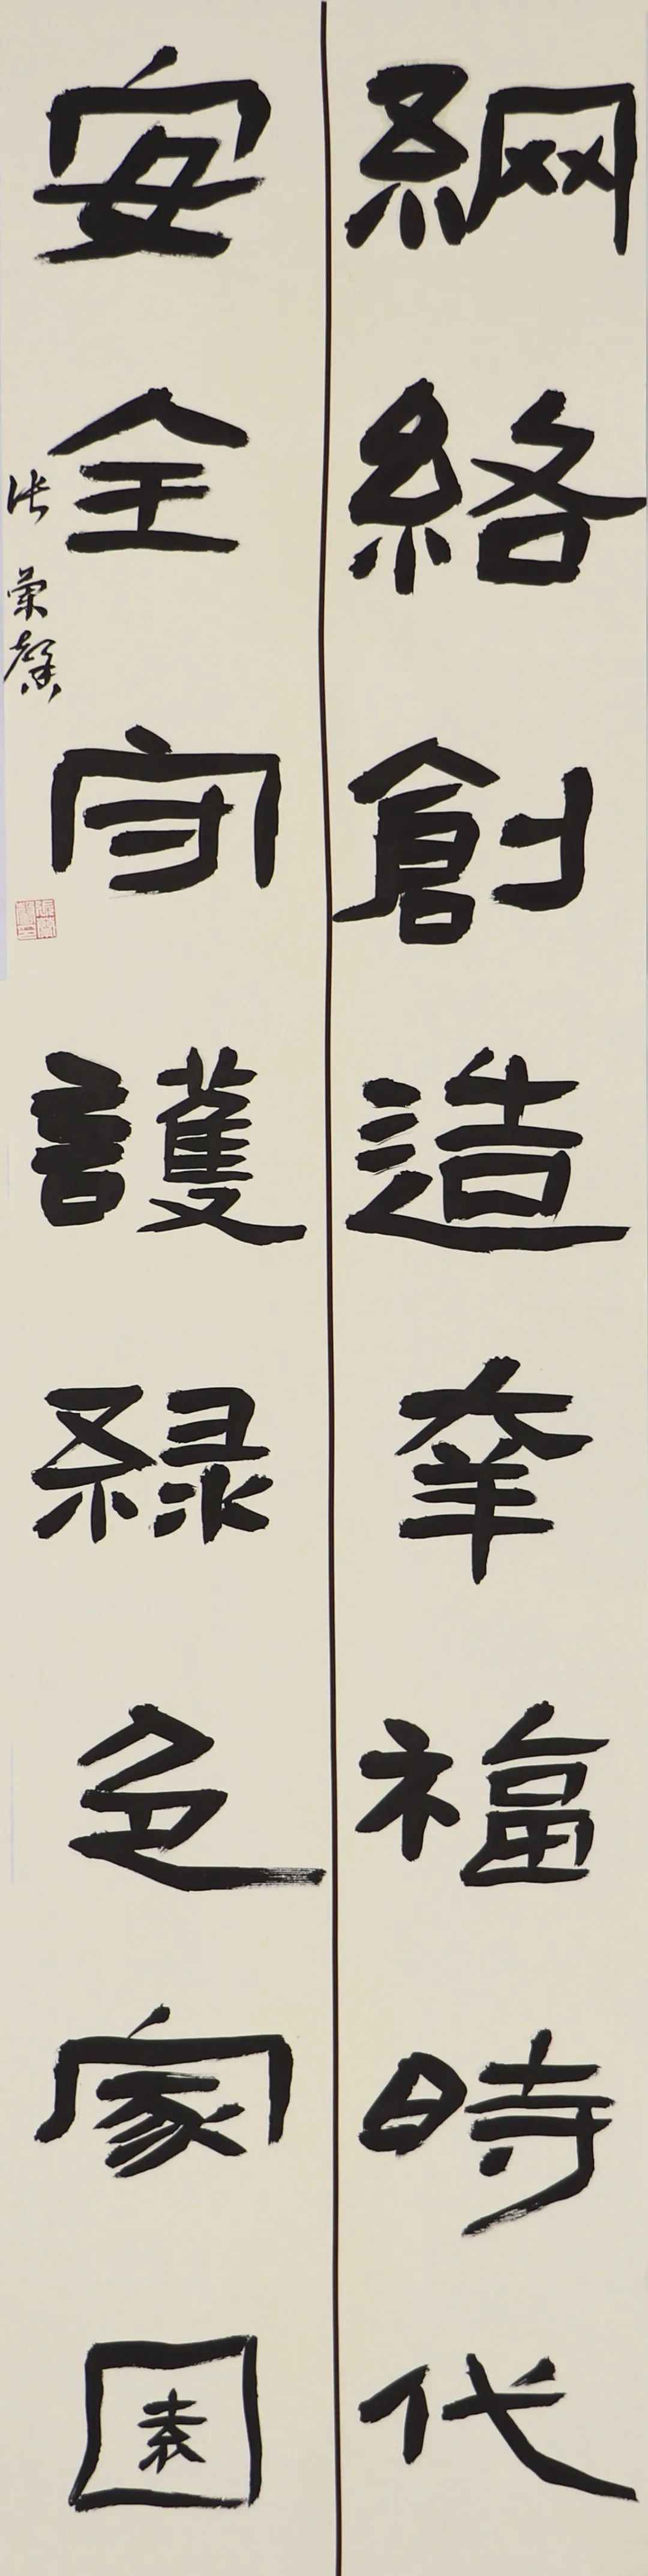 網絡創造幸福時代
安全守護緑色家園
张